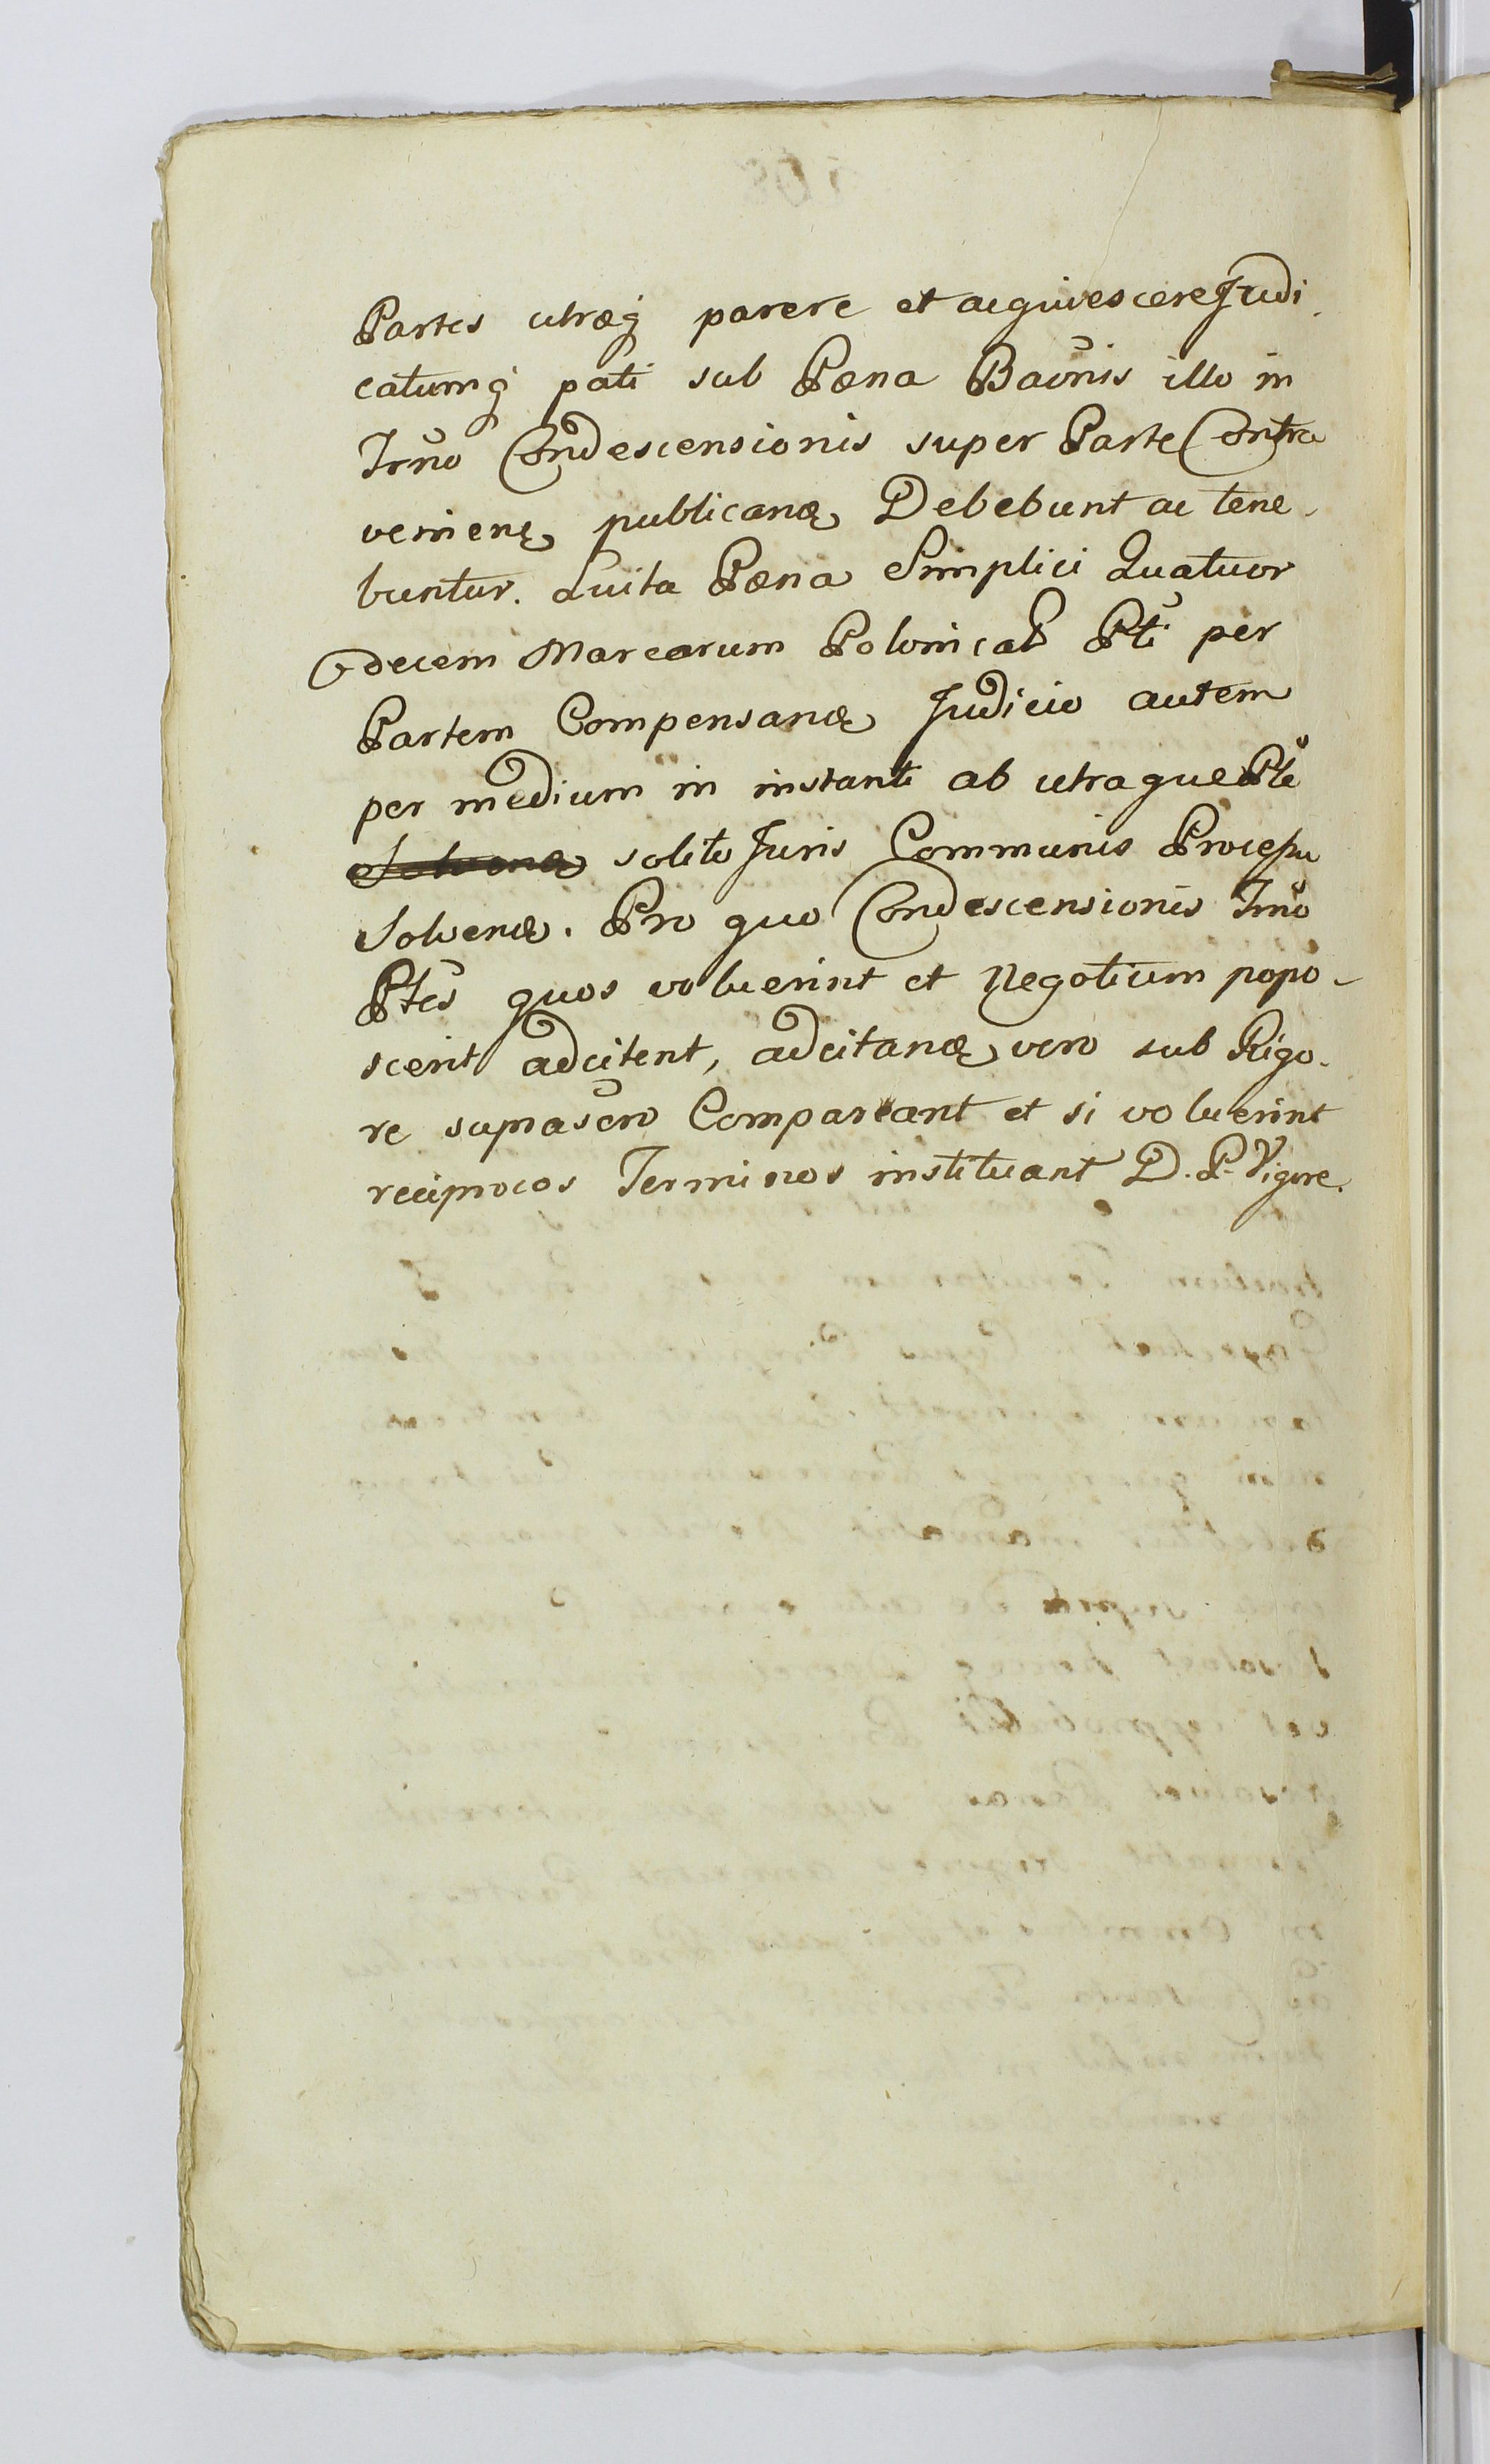 Partes utræq parere et acquiescere Judi
catumq pati sub Pæna Baōnis illo in
Trn̄o Condescensionis super Parte Contra
venienę publicanæ Debebunt ac tene-
buntur. Luita Pæna Simplici Quatuor
decem Marcarum Polonical Pti per
Partem Compensanæ Judicio autem
per medium in instanti ab utraque Pte
Solvenæ solito Juris Communis Processu
Solvenæ. Pro quo Condescensionis Trn̄o
Ptes quos voluerint et Negotium popo-
scerit adcitent, adcitanæ vero sub Rigo-
re suprascro Compareant et si voluerint
reciprocos Terminos instituant D. P. Vigore.